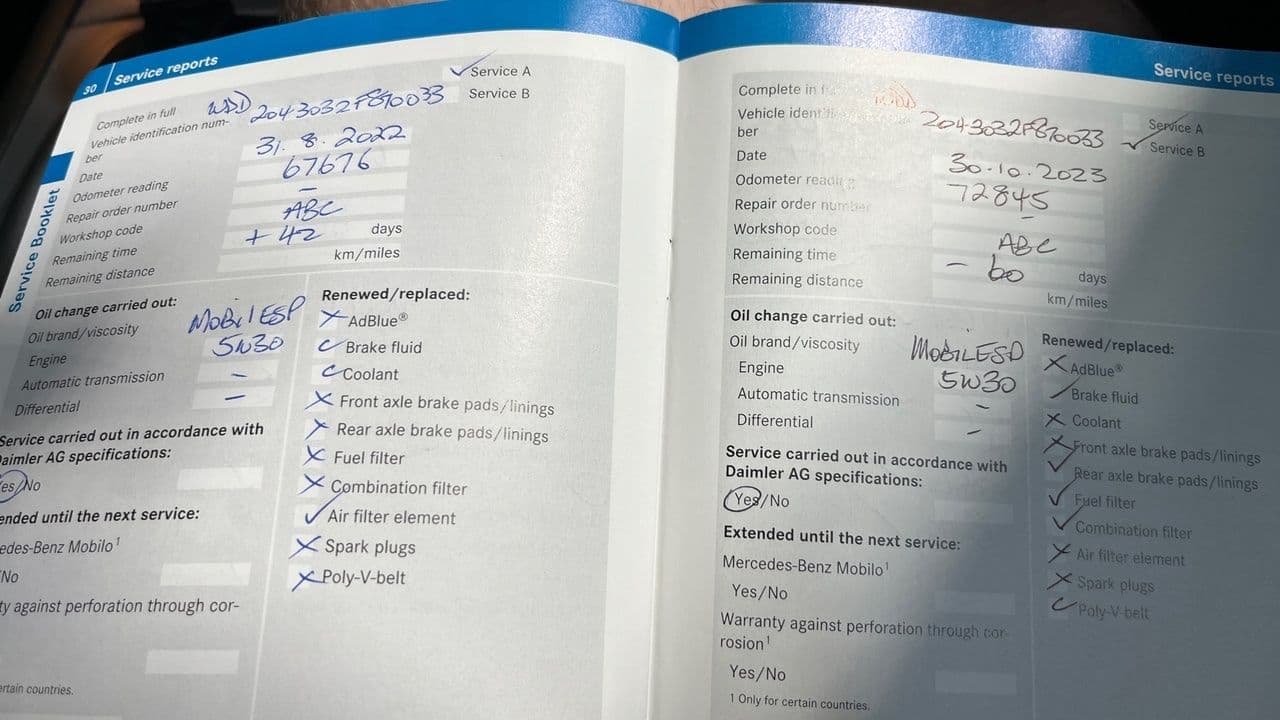 30 Service reports
Service Booklet
Complete in full
✓ Service A
Service B
Vehicle identification num-
ber
WDD 2043032F870033
Date 31. 8. 2022
Odometer reading 67676
Repair order number –
Workshop code ABC
Remaining time + 42 days
Remaining distance km/miles
Oil change carried out:
Oil brand/viscosity MOBIL ESP
Engine 5W30
Automatic transmission –
Differential –
Service carried out in accordance with
Daimler AG specifications:
Yes/No
ended until the next service:
edes-Benz Mobilo¹
No
ty against perforation through cor-
ertain countries.
Renewed/replaced:
X AdBlue®
✓ Brake fluid
✓ Coolant
X Front axle brake pads/linings
X Rear axle brake pads/linings
X Fuel filter
X Combination filter
✓ Air filter element
X Spark plugs
X Poly-V-belt
Service reports
Complete in
Service A
✓ Service B
Vehicle identi
ber
WDD 2043032F870033
Date 30.10.2023
Odometer reading 72845
Repair order number –
Workshop code ABC
Remaining time – 60 days
Remaining distance km/miles
Oil change carried out:
Oil brand/viscosity MOBIL ESP
Engine 5W30
Automatic transmission –
Differential –
Service carried out in accordance with
Daimler AG specifications:
Yes/No
Extended until the next service:
Mercedes-Benz Mobilo¹
Yes/No
Warranty against perforation through cor-
rosion¹
Yes/No
1 Only for certain countries.
Renewed/replaced:
X AdBlue®
✓ Brake fluid
X Coolant
X Front axle brake pads/linings
✓ Rear axle brake pads/linings
✓ Fuel filter
✓ Combination filter
X Air filter element
X Spark plugs
✓ Poly-V-belt